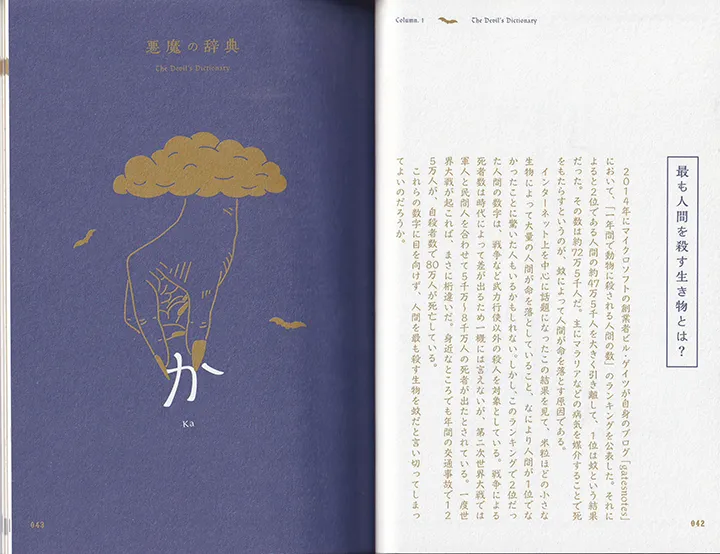 Column. 1 The Devil's Dictionary
最も人間を殺す生き物とは?
2014年にマイクロソフトの創業者ビル・ゲイツが自身のブログ「gatesnotes」
において、「一年間で動物に殺される人間の数」のランキングを公表した。それに
よると2位である人間の約47万5千人を大きく引き離して、1位は蚊という結果
だった。その数は約72万5千人だ。主にマラリアなどの病気を媒介することで死
をもたらすというのが、蚊によって人間が命を落とす原因である。
インターネット上を中心に話題になったこの結果を見て、米粒ほどの小さな
生物によって大量の人間が命を落としていること、なにより人間が1位でな
かったことに驚いた人もいるかもしれない。しかし、このランキングで2位だっ
た人間の数字は、戦争など武力行使以外の殺人を対象としている。戦争による
死者数は時代によって差が出るため一概には言えないが、第二次世界大戦では
軍人と民間人を合わせて5千万〜8千万人の死者が出たとされている。一度世
界大戦が起これば、まさに桁違いだ。身近なところでも年間の交通事故で12
5万人が、自殺者数で80万人が死亡している。
これらの数字に目を向けず、人間を最も殺す生物を蚊だと言い切ってしまっ
てよいのだろうか。
042
悪魔の辞典
The Devil's Dictionary
か
Ka
043